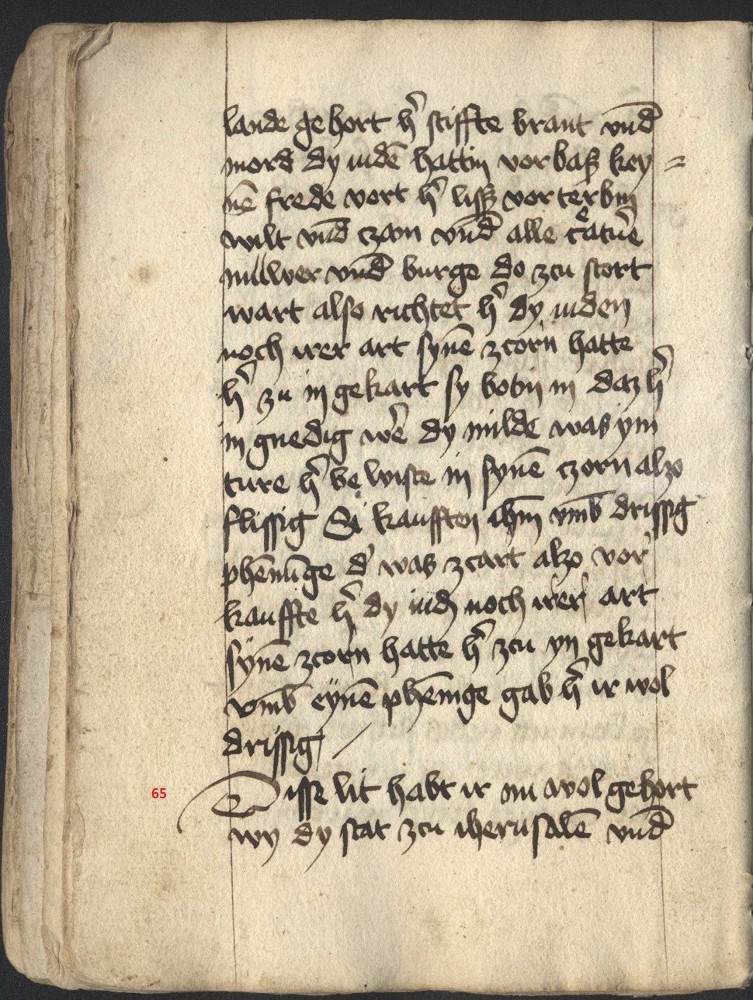 lande gehort h' stiffte brant vnd
mord dy iudē hattin vorbaß key =
nē frede vort h' liß vorterbin
wilt vnd czam vnd alle c'atuē
mwer vnd burge do zcu stort
wart also richtet h' dy iuden
noch irer art synē zcorn hatte
h' zu in gekart sy botin in daz h'
in gnedig wē dy milde was ym
ture h' bewiste in synē czorn alzo
flissig Si kaufften ihm vmb drissig
phennīge d' was zcart alzo vor
kauffte h' dy iudē noch irer art
synē zcorn hatte h' zcu yn gekart
vmb eynē phennige gab h' ir wol
drissig /
65 Disse lit habt ir nu wol gehort
wy dy stat zcu iherusalē vnd